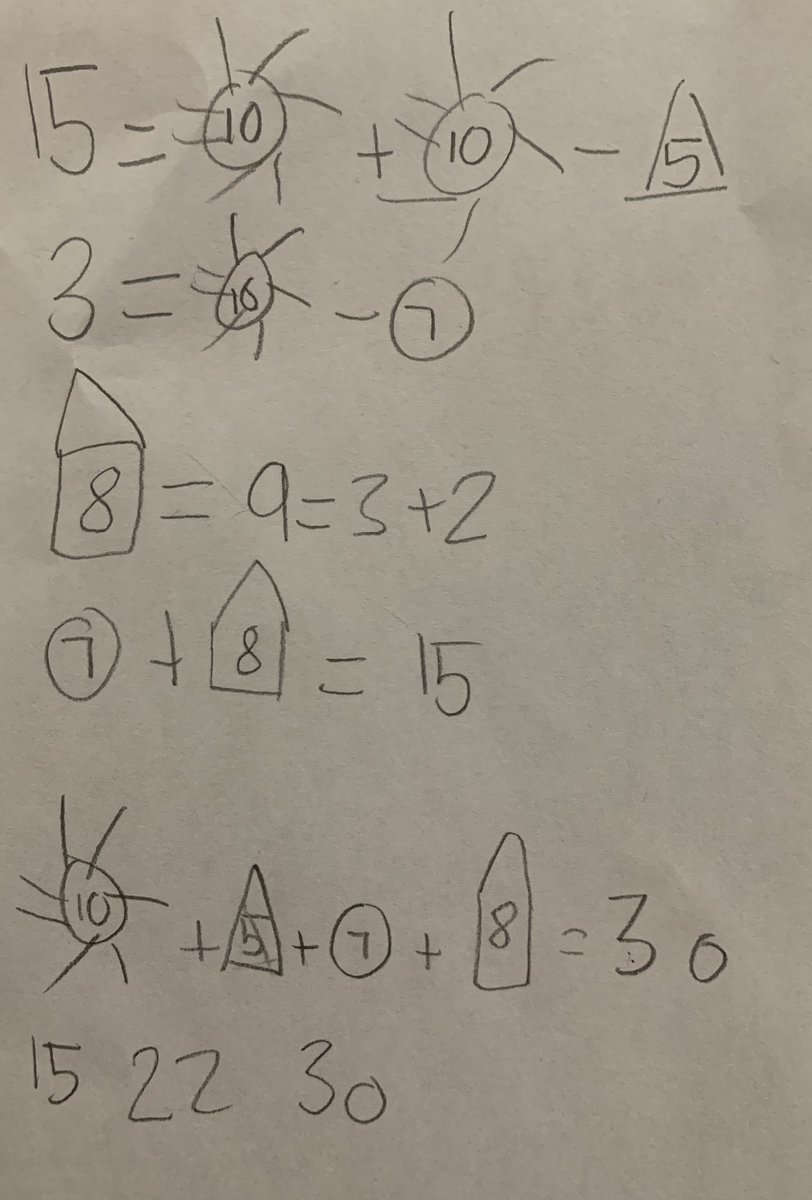 15 = 10 + 10 - 5
3 = 10 - 7
8 = 9 = 3 + 2
7 + 8 = 15
10 + 5 + 7 + 8 = 30
15 22 30